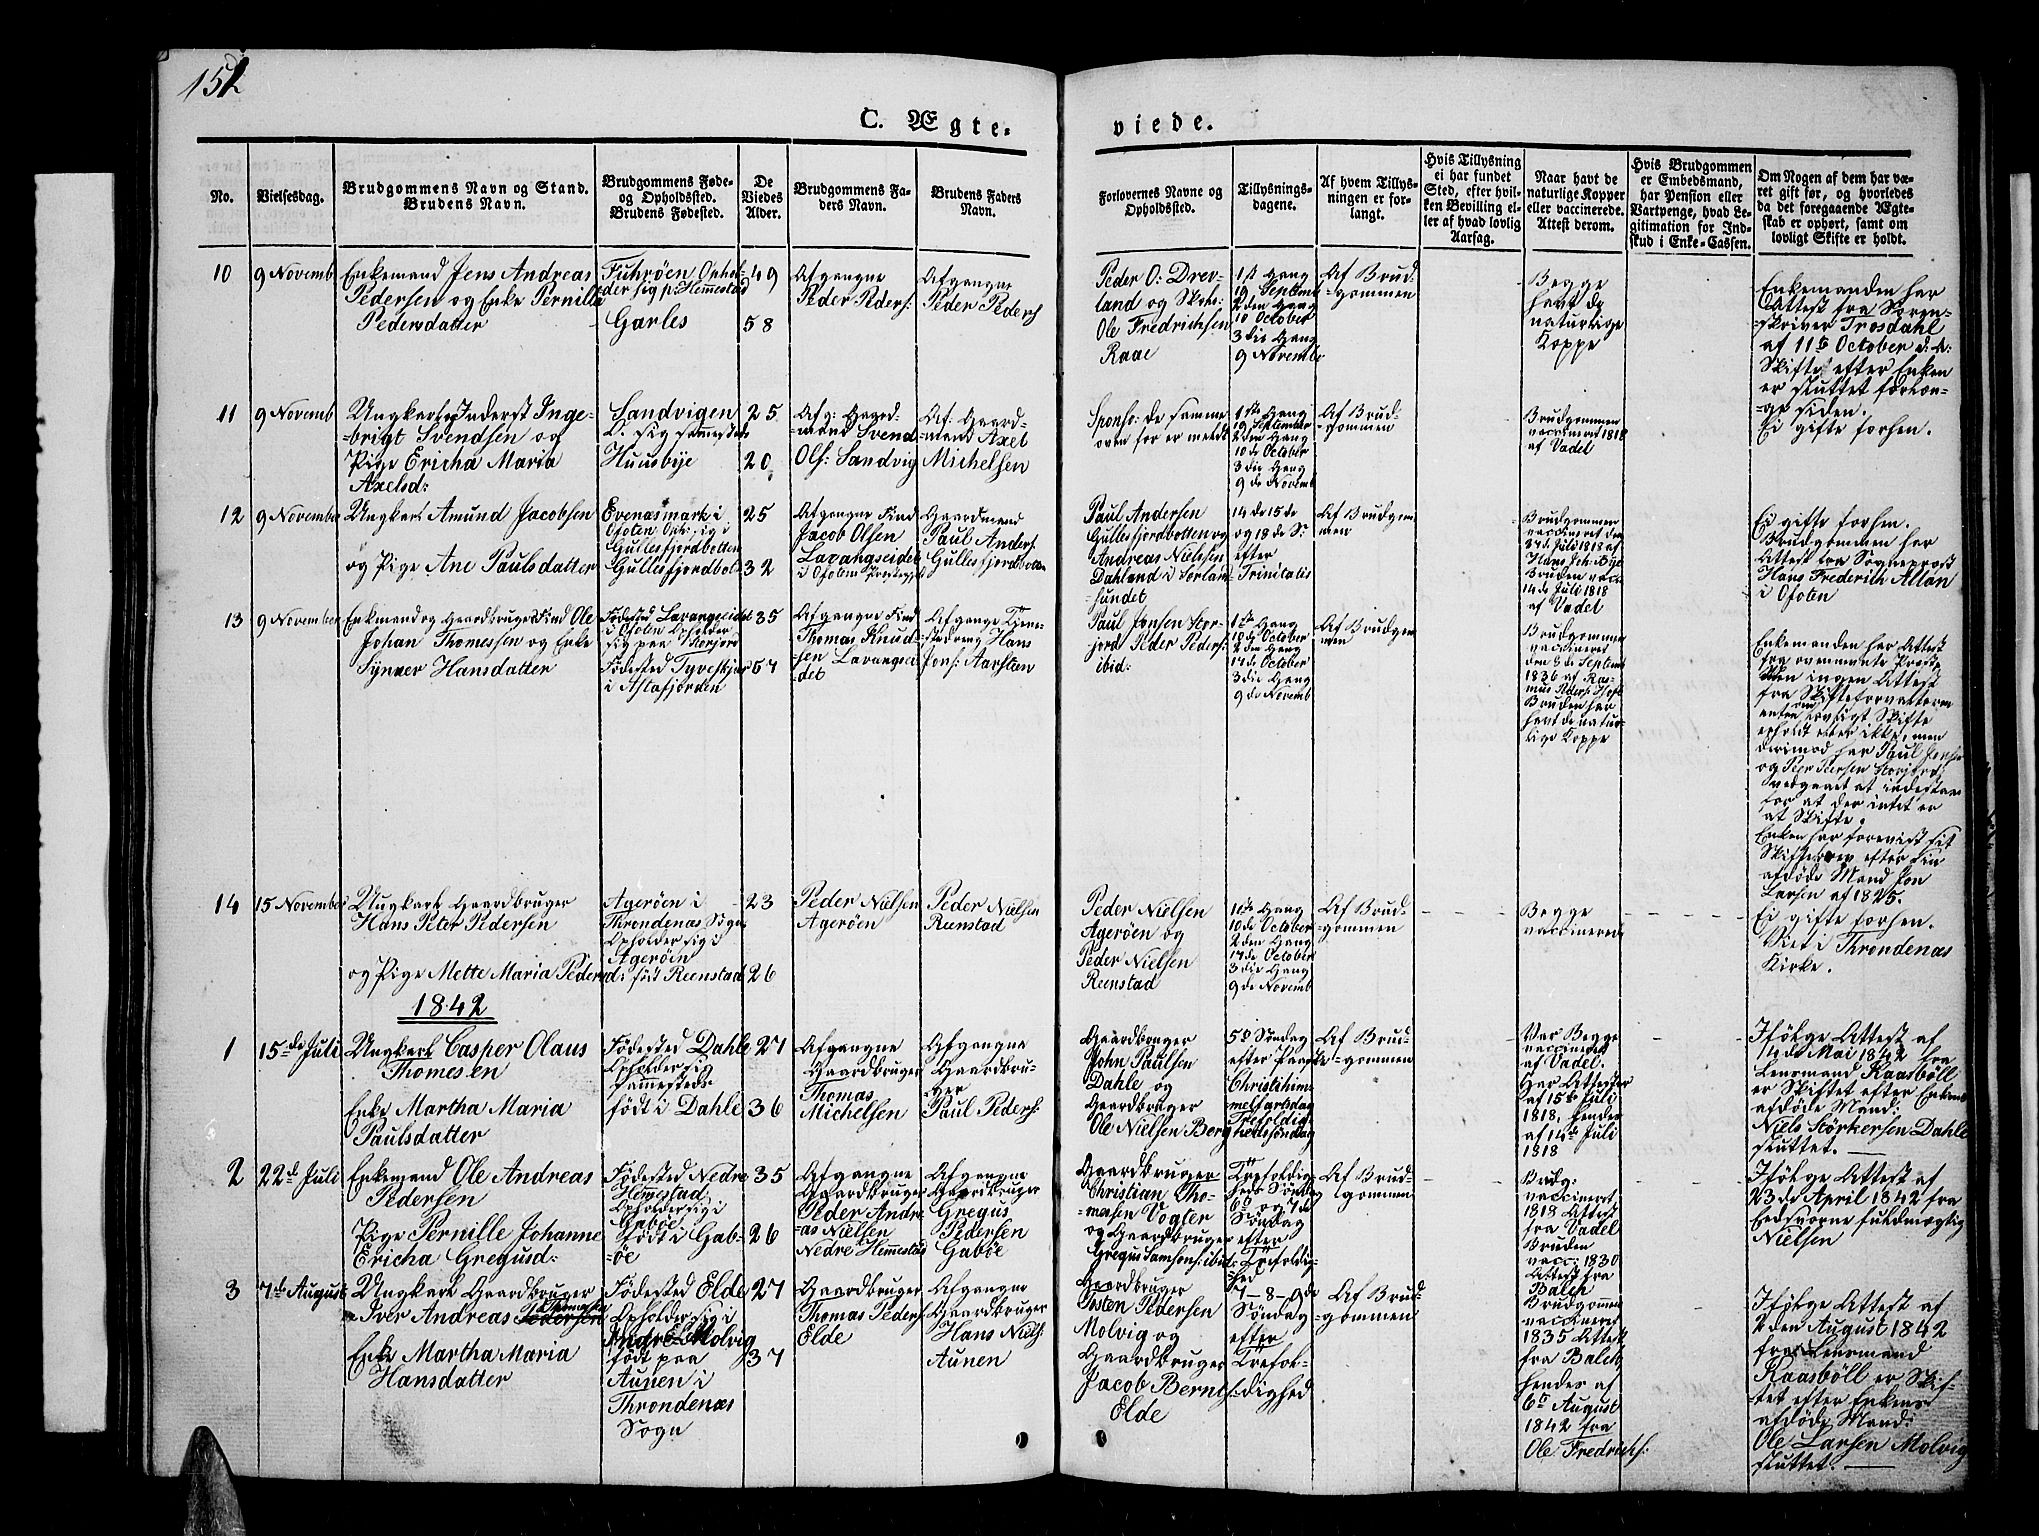 152
C. Ægte-
viede.
No.
Vielsesdag.
Brudgommens Navn og Stand.
Brudens Navn.
Brudgommens Føde-
og Opholdssted.
Brudens Fødested.
De
Viedes
Alder.
Brudgommens Fa-
ders Navn.
Brudens Faders
Navn.
Forlovernes Navne og
Opholdssted.
Tillysnings-
dagene.
Af hvem Tillys-
ningen er for-
langt.
Hvis Tillysning
ei har fundet
Sted, efter hvil-
ken Bevilling el-
ler af hvad lovlig
Aarsag.
Naar havt de
naturlige Kopper
eller vaccinerede.
Attest derom.
Hvis Brudgommen
er Embedsmand,
har Pension eller
Vartpenge, hvad Le-
gitimation for Ind-
skud i Enke-Cassen.
Om Nogen af dem har væ-
ret gift før, og hvorledes
da det foregaaende Ægte-
skab er ophørt, samt om
lovligt Skifte er holdt.
10
9 Novemb
Enkemand Jens Andreas
Pedersen og Enke Pernille
Pedersdatter
Fuhröen Ophol-
der sig p: Hemestad
Garles
49
58
Afgangne
Peder Peders:
Afgangne
Peder Peders
Peder O: Drev-
land og Skoh:
Ole Fredrichsen
Raae
1ste Gang
19 Septemb
2den Gang
10 October
3die Gang
9 Novembe
Af Brud-
-gommen
Begge
havt de
naturlige
Koppe
Enkemanden har
Attest fra Soren-
-skriver Trosdahl
af 11te October d: A:
Skifte efter Enken
er sluttet forlæn-
-ge siden.
11
9 Novemb
Ungkarl Inderst Inge-
-brigt Svendsen og
Pige Ericha Maria
Axelsd:
Sandvigen
O. sig samested
Huusbye
25
20
Afg: Gaard-
-mand Svend
Ols: Sandvig
Af. Gaard-
-mand Axel
Michelsen
Sponso: de samme
oven for er meldt
1ste Gang
19 September
2den Gang
10de October
3die Gang
9de Novemb
Af Brud-
gommen
Brudgommen
vaccineret 1818
af Vadel
Ei gifte forhen.
12
9 November
Ungkarl Amund Jacobsen
og Pige Ane Paulsdatter
Evenæsmark i
Ofoten Oph: sig i
Gullesfjordbotten
Gullesfjordbott
25
32
Afgangne Find
Jacob Olsen
Lavangseidet
i Ofotens Præstegjeld
Gaardmand
Paul Anders:
Gullesfjordbotten
Paul Andersen
Gullesfjordbotten og
Andreas Nielsen
Dahland i Sørlan-
-sundet
14de 15de
og 18de S:
efter
Trinitatis
Af Brudgom
men
Brudgommen
vaccineret den
27de Juli 1818 af
Hans Joh: Bye
Bruden vacc:
14de Juli 1818
af Vadel
Ei gifte forhen.
Brudgommen har
Attest fra Sogneprost
Hans Frederich Allan
i Ofoten
13
9 November
Enkemand og Gaardbruger Find Ole
Johan Thomessen og Enke
Synner Hansdatter
Fødested Lavangseidet
i Ofoten Opholder
sig paa Storjord
Fødested Tyveskjær
i Astafjorden
35
57
Afgangne Find
Thomas Knud-
-sen Lavangsei-
det
Afgangne Tjene-
stedreng Hans
Jons: Aarsten
Paul Jonsen Stor-
jord Peder Peders:
ibid:
1ste Gang
10de October
2den Gang
17de October
3die Gang
9de Novemb
Af Brudgom
men
Brudgommen
vaccineret
den 8de Septemb
1836 af Ras-
mus Peders Hof
Bruden har
havt de natur-
lige Koppe
Enkemanden har Attest
fra ovenmente Prost
Men ingen Attest
fra Skifteforvalteren
enten om lovligt Skifte
er holdt eller ikke, men
derimod har Paul Jonsen
og Peer Peersen Storjord
vedgaaet at indestaae
for at der intet er
at Skifte.
Enken har forevist sit
Skiftebrev efter sin
afdøde Mand Jon
Larsen af 1825.
14
15 November
Ungkarl Gaardbruger
Hans Peter Pedersen
og Pige Mette Maria Peders
Agerøen i
Throndenæs Sogn
Opholder sig i
Agerøen
d: föd Reenstad
23
26
Peder Nielsen
Agerøen
Peder Nielsen
Reenstad
Peder Nielsen
Agerøen og
Peder Nielsen
Reenstad
1ste Gang
10de October
2den Gang
17de October
3die Gang
9de Novemb
Af Brud-
gommen
Begge
vaccinerede
Ei gifte forhen.
Viet i Throndenæs
Kirke.
1842
1
15de Juli
Ungkarl Casper Olaus
Thomesen
Enke Martha Maria
Paulsdatter
Födested Dahle
Opholder sig
sammesteds
født i Dahle
27
36
Afgangne
Gaardbruger
Thomas
Michelsen
Afgangne
Gaardbru-
ger
Paul Peders:
Gaardbruger
John Paulsen
Dahle og
Gaardbruger
Ole Nielsen Berg
5te Söndag
efter Paaske
Christihim-
melfartsdag
Trefoldig-
hedssöndag
Af Brud-
-gommen
Var Begge
vaccineret
af Vadel.
Har Attester
af 15de Juli
1818, hendes
af 14de Juli
1818
Ifölge Attest af
14de Mai 1842 fra
Lensmand Raasböll
er Skiftet efter Enkens
afdøde Mand:
Niels Störkersen Dahle
sluttet.
2
22de Juli
Enkemand Ole Andreas
Pedersen
Pige Pernille Johanne
Ericha Gregusd:
Födested Nedre
Hemestad
Opholder sig i
Gaböe
født i Gab-
-öe
35
26
Afgangne
Gaardbruger
Peder Andre-
as Nielsen
Nedre Hemmestad
Afgangne
Gaardbruger
Gregus
Pedersen
Gaböe
Gaardbruger
Christian Tho-
-masen Vogter
og Gaardbruger
Gregus Samsons: ibid:
Trefoldig-
heds Söndag
6te og 7de
Söndag
efter
Trefoldig-
hed
Af Brud-
gommen
Brudg:
vaccineret
1818 Attest
fra Vadel
Bruden
vacc: 1830
Attest fra
Balch
Ifölge Attest af
23de April 1842 fra
Eedsvorne fuldmægtig
Nielsen
3
7de August
Ungkarl Gaardbruger
Iver Andreas Pedersen
Thomesen
Enke Martha Maria
Hansdatter
Födested Elde
Opholder sig i
Molvig
født paa
Aunen i
Throndenæs
Sogn
27
37
Gaardbruger
Thomas Peders
Elde
Afgangne
Gaardbruger
Hans Niels:
Aunen
Gaardbruger
Osten Pedersen
Molvig og
Gaardbruger
Jacob Bernts:
Elde
7-8-9de
Söndag
efter
Trefol-
dighed
Af Brud-
gommen
Brudgommen
vaccineret
1835 Attest
fra Balch
hendes af
6te August
1842 fra
Ole Fredrichs:
Ifölge Attest af
2den August 1842
fra Lensmand
Raasböll er Skif-
-tet efter Enkens
afdøde Mand:
Ole Larsen Molvig
sluttet.